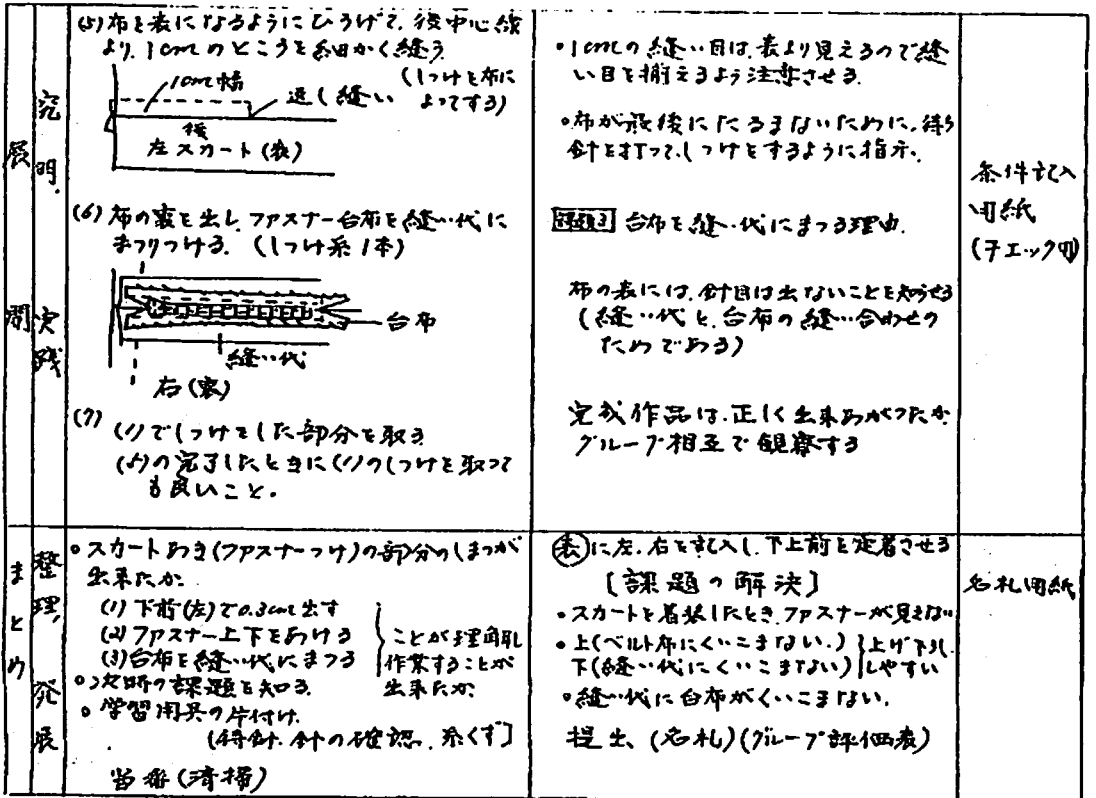 展開
究明、実践
(5)布を表になるようにひろげて、後中心線
より、1cmのところを細かく縫う
(しつけを布に
よってする)
1cm幅
返し縫い
後
左スカート(表)
(6)布の裏を出し、ファスナー台布を縫い代に
まつりつける。(しつけ糸1本)
台布
縫い代
右(裏)
(7)
(1)でしつけをした部分を取る
(5)の完了したときに(1)のしつけを取って
も良いこと。
・1cmの縫い目は、表より見えるので縫
い目を揃えるよう注意させる。
・布が最後にたるまないために、待ち
針を打って、しつけをするように指示。
課題3 台布を縫い代にまつる理由。
布の表には、針目は出ないことを知らせる
(縫い代と、台布の縫い合わせの
ためである)
完成作品は、正しく出来あがったか
グループ相互で観察する
条件記入
用紙
(チェック用)
まとめ
整理、発展
・スカートあき(ファスナーつけ)の部分のしまつが
出来たか
(1)下前(左)で0.3cm出す
(2)ファスナー上下をあける
(3)台布を縫い代にまつる
ことが理解し
作業することが
出来たか
・次時の課題を知る
・学習用具の片付け
(待針、針の確認、糸くず]
当番(清掃)
(表)に左、右を記入し、下上前を定着させる
[課題の解決]
・スカートを着装したとき、ファスナーが見えない
・上(ベルト布にくいこまない。)
下(縫い代にくいこまない)
上げ下し、
しやすい
・縫い代に台布がくいこまない。
提出、(名札)(グループ評価表)
名札用紙